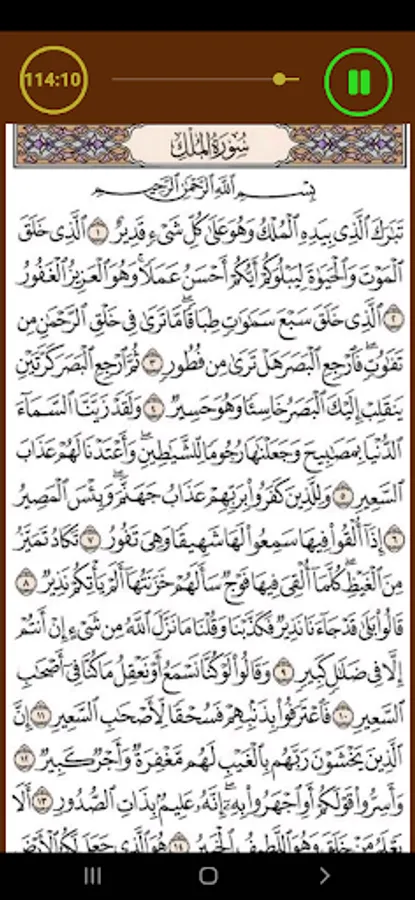 114:10
سُورَةُ المُلْكِ
بِسْمِ اللَّهِ الرَّحْمَٰنِ الرَّحِيمِ
تَبَٰرَكَ الَّذِي بِيَدِهِ الْمُلْكُ وَهُوَ عَلَىٰ كُلِّ شَيْءٍ قَدِيرٌ ١ الَّذِي خَلَقَ
الْمَوْتَ وَالْحَيَوٰةَ لِيَبْلُوَكُمْ أَيُّكُمْ أَحْسَنُ عَمَلًا وَهُوَ الْعَزِيزُ الْغَفُورُ
٢ الَّذِي خَلَقَ سَبْعَ سَمَٰوَٰتٍ طِبَاقًا مَّا تَرَىٰ فِي خَلْقِ الرَّحْمَٰنِ مِن
تَفَٰوُتٍ فَارْجِعِ الْبَصَرَ هَلْ تَرَىٰ مِن فُطُورٍ ٣ ثُمَّ ارْجِعِ الْبَصَرَ كَرَّتَيْنِ
يَنقَلِبْ إِلَيْكَ الْبَصَرُ خَاسِئًا وَهُوَ حَسِيرٌ ٤ وَلَقَدْ زَيَّنَّا السَّمَاءَ
الدُّنْيَا بِمَصَٰبِيحَ وَجَعَلْنَٰهَا رُجُومًا لِّلشَّيَٰطِينِ وَأَعْتَدْنَا لَهُمْ عَذَابَ
السَّعِيرِ ٥ وَلِلَّذِينَ كَفَرُوا بِرَبِّهِمْ عَذَابُ جَهَنَّمَ وَبِئْسَ الْمَصِيرُ
٦ إِذَا أُلْقُوا فِيهَا سَمِعُوا لَهَا شَهِيقًا وَهِيَ تَفُورُ ٧ تَكَادُ تَمَيَّزُ
مِنَ الْغَيْظِ كُلَّمَا أُلْقِيَ فِيهَا فَوْجٌ سَأَلَهُمْ خَزَنَتُهَا أَلَمْ يَأْتِكُمْ نَذِيرٌ ٨
قَالُوا بَلَىٰ قَدْ جَاءَنَا نَذِيرٌ فَكَذَّبْنَا وَقُلْنَا مَا نَزَّلَ اللَّهُ مِن شَيْءٍ إِنْ أَنتُمْ
إِلَّا فِي ضَلَٰلٍ كَبِيرٍ ٩ وَقَالُوا لَوْ كُنَّا نَسْمَعُ أَوْ نَعْقِلُ مَا كُنَّا فِي أَصْحَٰبِ
السَّعِيرِ ١٠ فَاعْتَرَفُوا بِذَنبِهِمْ فَسُحْقًا لِّأَصْحَٰبِ السَّعِيرِ ١١ إِنَّ
الَّذِينَ يَخْشَوْنَ رَبَّهُم بِالْغَيْبِ لَهُم مَّغْفِرَةٌ وَأَجْرٌ كَبِيرٌ ١٢
وَأَسِرُّوا قَوْلَكُمْ أَوِ اجْهَرُوا بِهِ إِنَّهُ عَلِيمٌ بِذَاتِ الصُّدُورِ ١٣ أَلَا
يَعْلَمُ مَنْ خَلَقَ وَهُوَ اللَّطِيفُ الْخَبِيرُ ١٤ هُوَ الَّذِي جَعَلَ لَكُمُ الْأَرْضَ